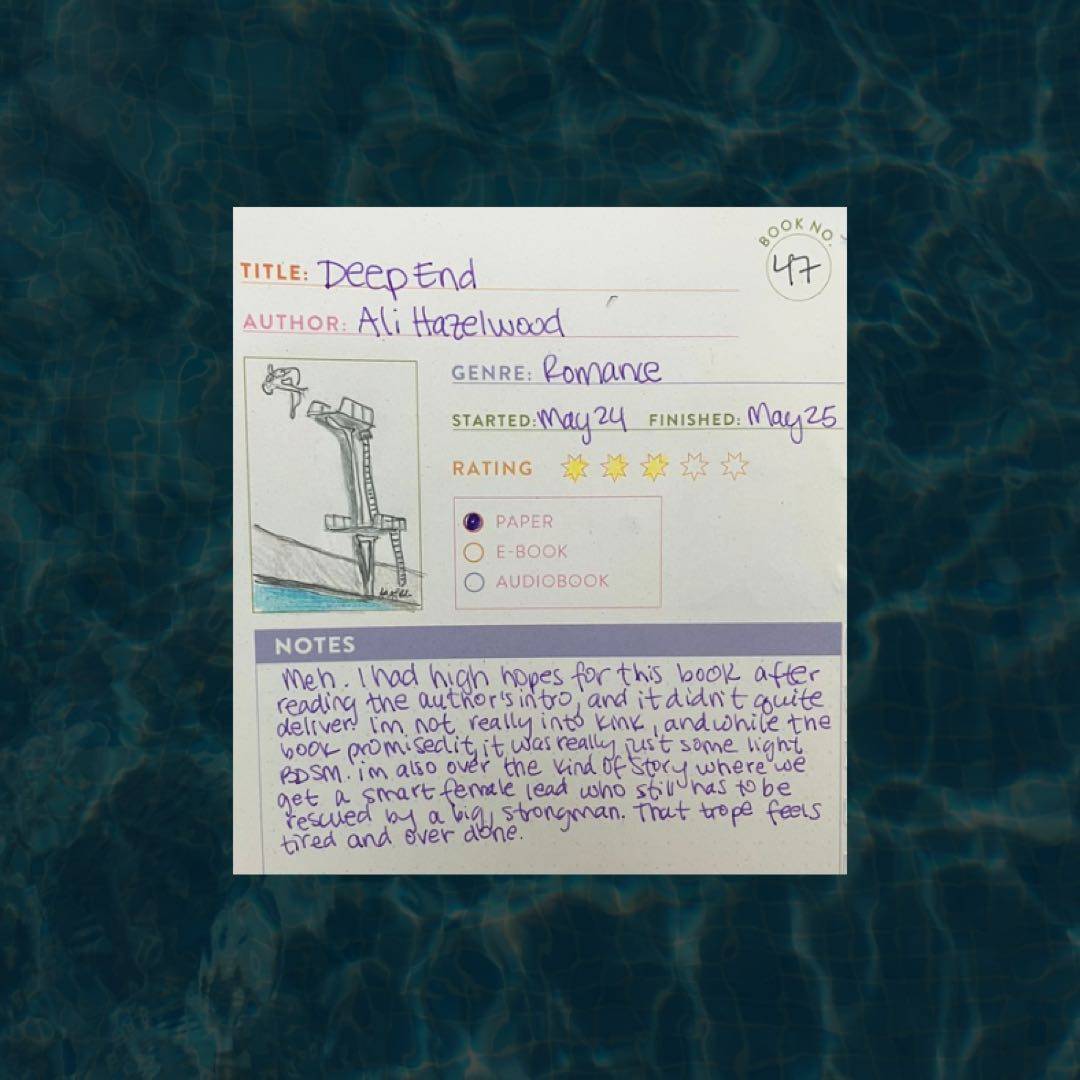 BOOK NO.
47
TITLE: Deep End
AUTHOR: Ali Hazelwood
GENRE: Romance
STARTED: May 24 FINISHED: May 25
RATING
PAPER
E-BOOK
AUDIOBOOK
NOTES
Meh. I had high hopes for this book after
reading the author's intro, and it didn't quite
deliver. I'm not really into kink, and while the
book promised it, it was really just some light
BDSM. I'm also over the kind of story where we
get a smart female lead who still has to be
rescued by a big, strongman. That trope feels
tired and over done.